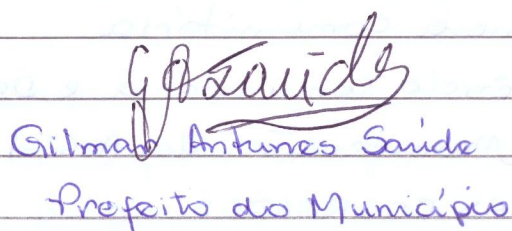 GASaúde
Gilmar Antunes Saúde
Prefeito do Município